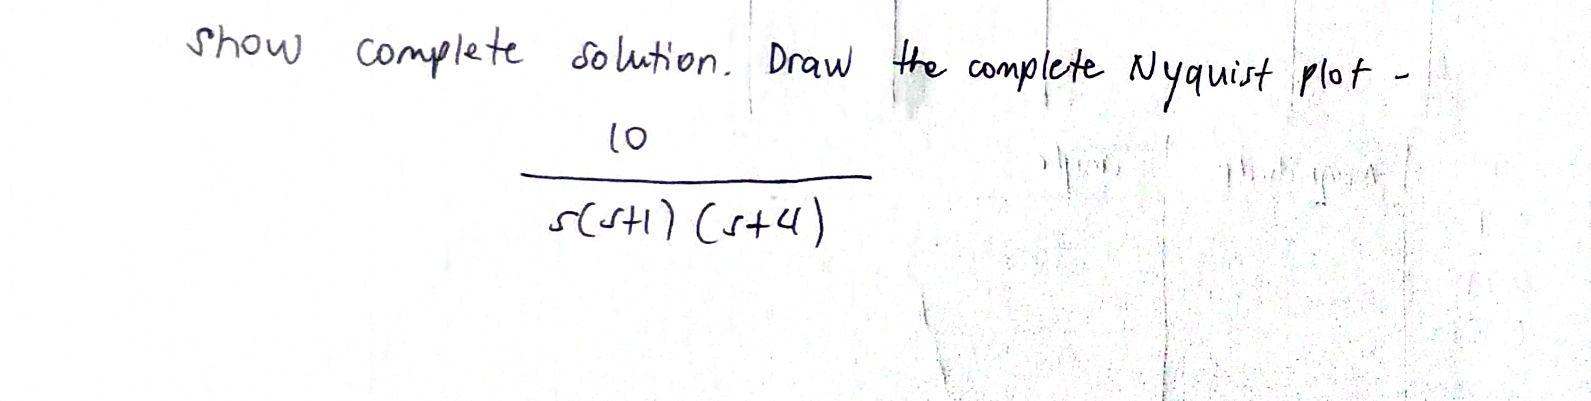 show complete solution. Draw the complete Nyquist plot -
10
s(s+1) (s+4)